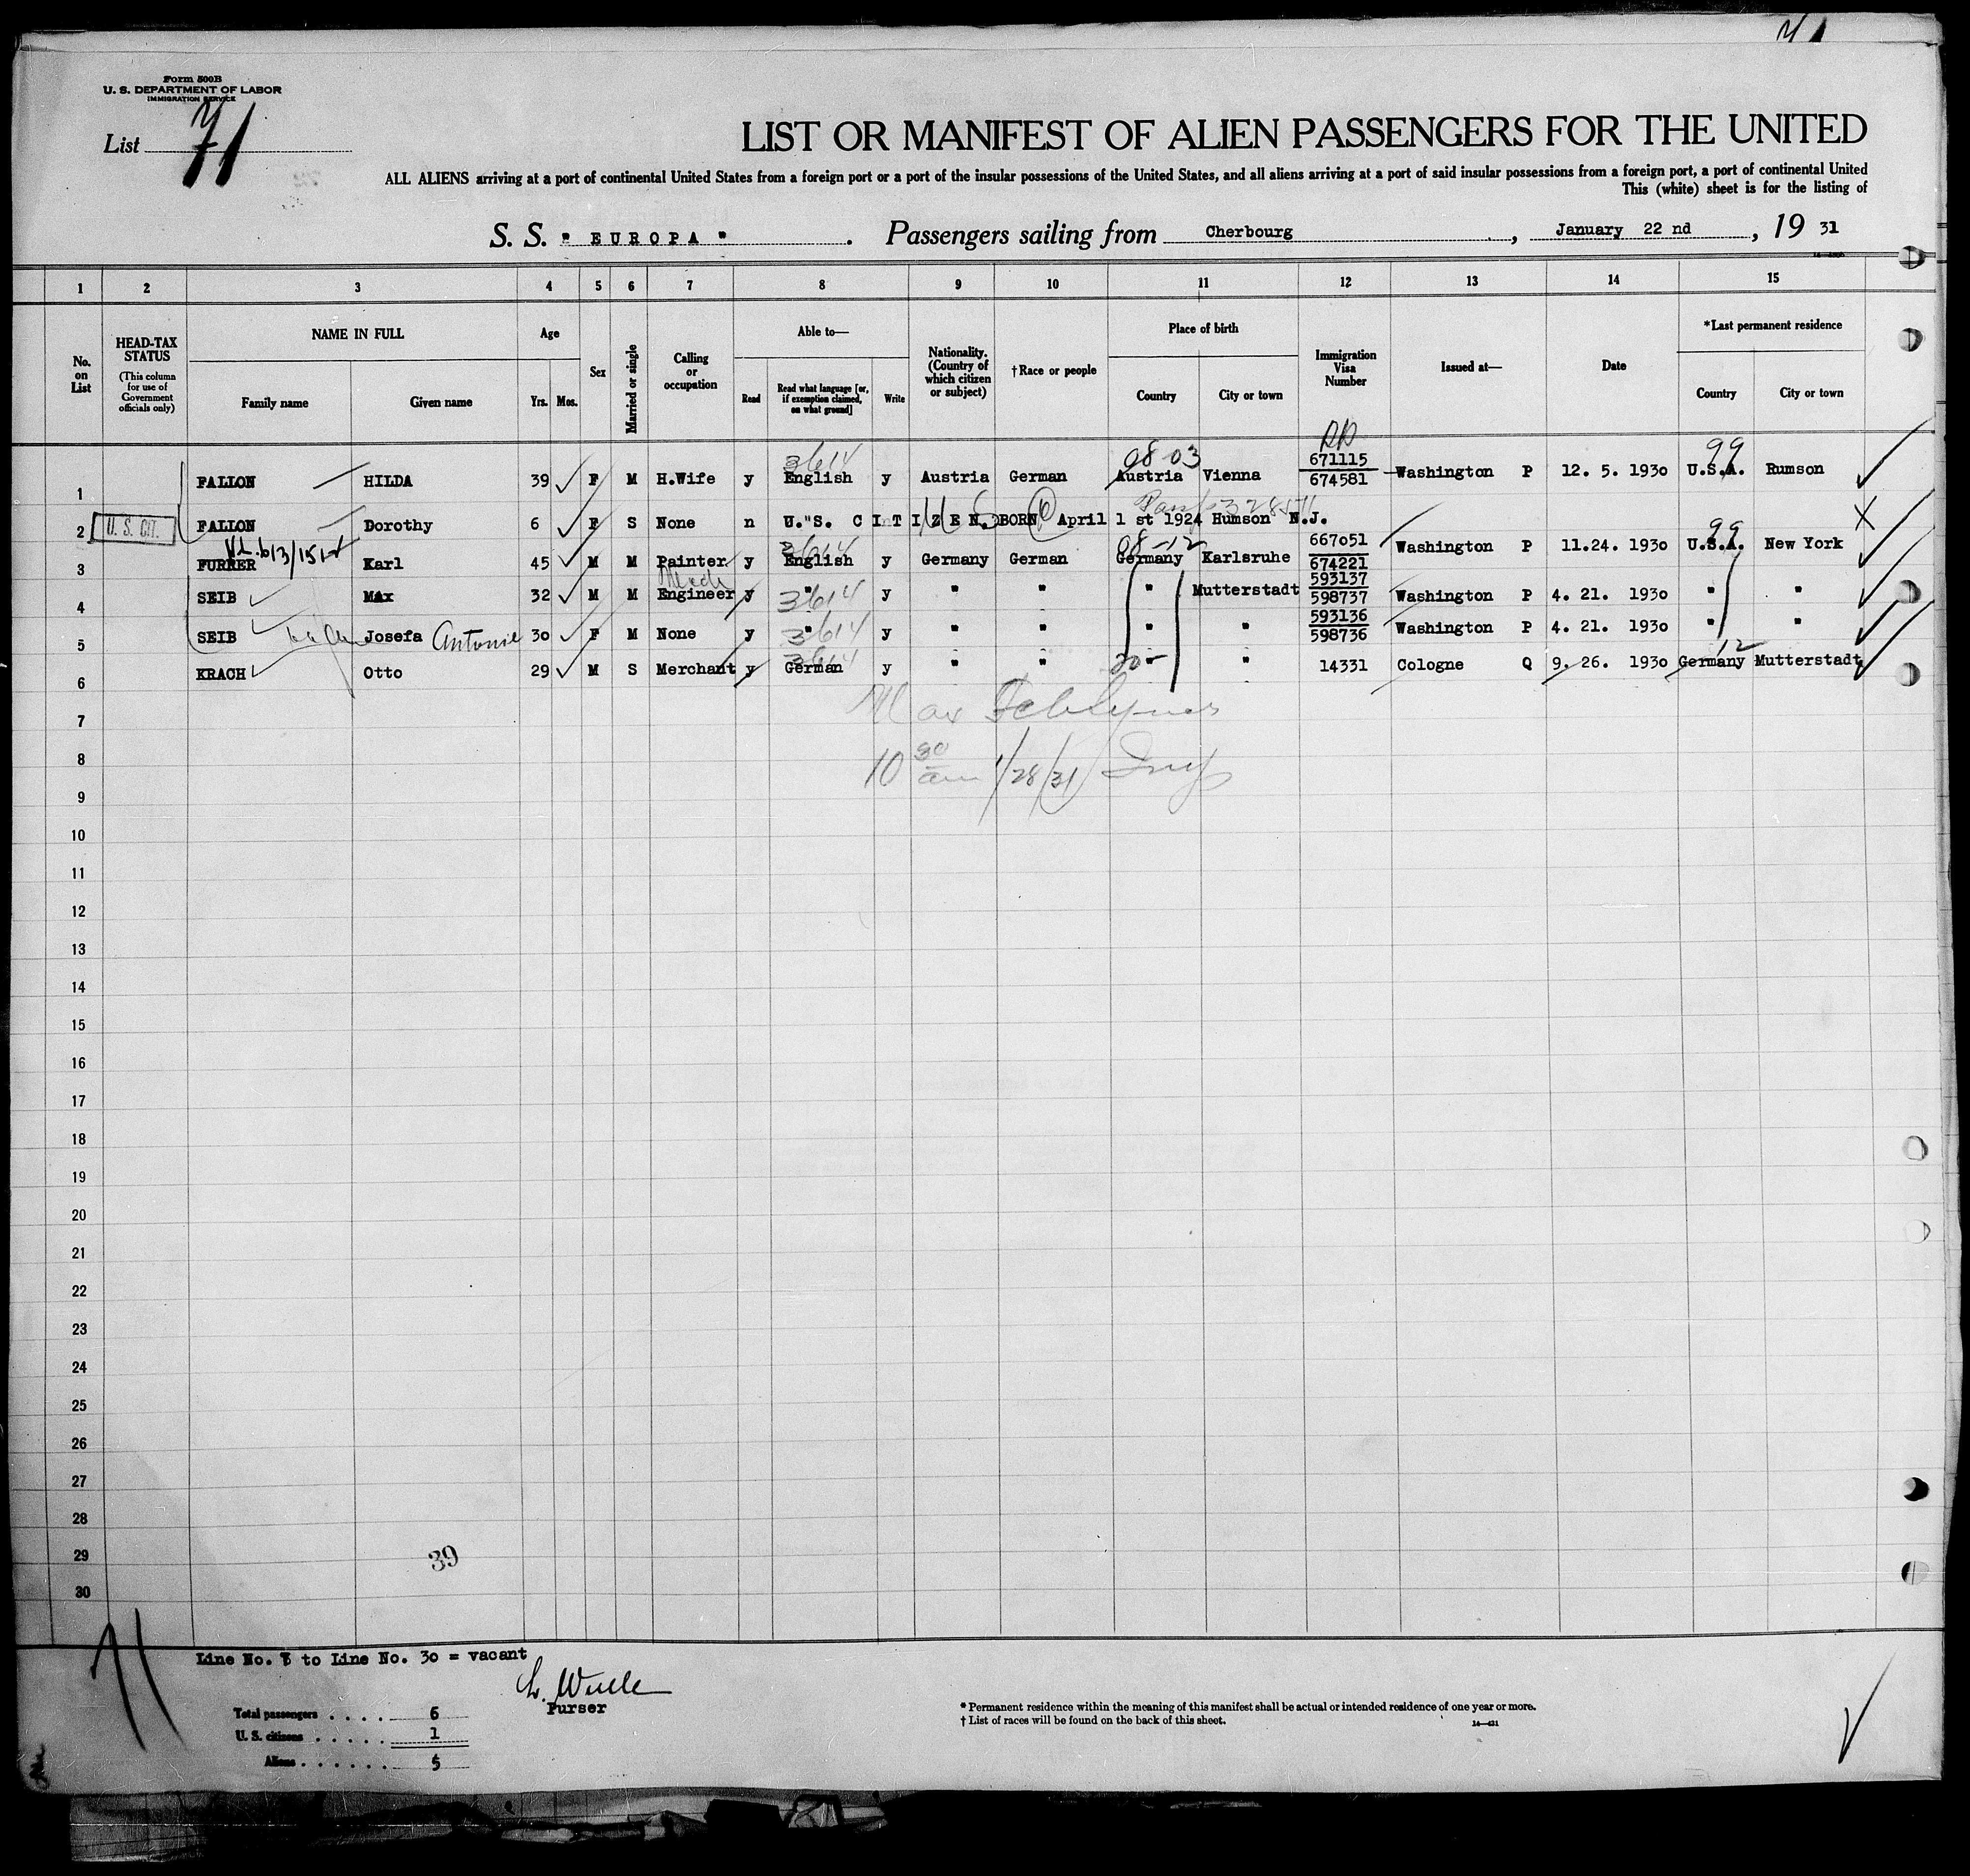 71
Form 500B
U. S. DEPARTMENT OF LABOR
IMMIGRATION SERVICE
List 71
LIST OR MANIFEST OF ALIEN PASSENGERS FOR THE UNITED
ALL ALIENS arriving at a port of continental United States from a foreign port or a port of the insular possessions of the United States, and all aliens arriving at a port of said insular possessions from a foreign port, a port of continental United
This (white) sheet is for the listing of
S. S. " EUROPA " . Passengers sailing from Cherbourg , January 22 nd , 19 31
1 2 3 4 5 6 7 8 9 10 11 12 13 14 15
No. on List
HEAD-TAX STATUS (This column for use of Government officials only)
NAME IN FULL Family name Given name
Age Yrs. Mos.
Sex
Married or single
Calling or occupation
Able to— Read Read what language [or, if exemption claimed, on what ground] Write
Nationality. (Country of which citizen or subject)
†Race or people
Place of birth Country City or town
Immigration Visa Number
Issued at—
Date
*Last permanent residence Country City or town
3614 08 03 99
1 FALLON HILDA 39 F M H.Wife y English y Austria German Austria Vienna 671115 674581 Washington P 12. 5. 1930 U.S.A. Rumson
2 U. S. CIT. FALLON Dorothy 6 F S None n U. S. CITIZEN. BORN April 1 st 1924 Humson N.J.
3614 08-12 99
3 FURRER Karl 45 M M Painter y English y Germany German Germany Karlsruhe 667051 674221 Washington P 11.24. 1930 U.S.A. New York
4 SEIB Max 32 M M Mech Engineer y " 3614 y " " " Mutterstadt 593137 598737 Washington P 4. 21. 1930 " "
5 SEIB Josefa Antonie 30 F M None y " 3614 y " " " " 593136 598736 Washington P 4. 21. 1930 " "
6 KRACH Otto 29 M S Merchant y German 3614 y " " " " 14331 Cologne Q 9. 26. 1930 Germany 12 Mutterstadt
7 Max
8 10 30 am 1/28/31
9
10
11
12
13
14
15
16
17
18
19
20
21
22
23
24
25
26
27
28
29 39
30
71
Line No. to Line No. 30 = vacant
Purser
Total passengers . . . . 6
U. S. citizens . . . . . 1
Aliens . . . . . . . 5
* Permanent residence within the meaning of this manifest shall be actual or intended residence of one year or more.
† List of races will be found on the back of this sheet.